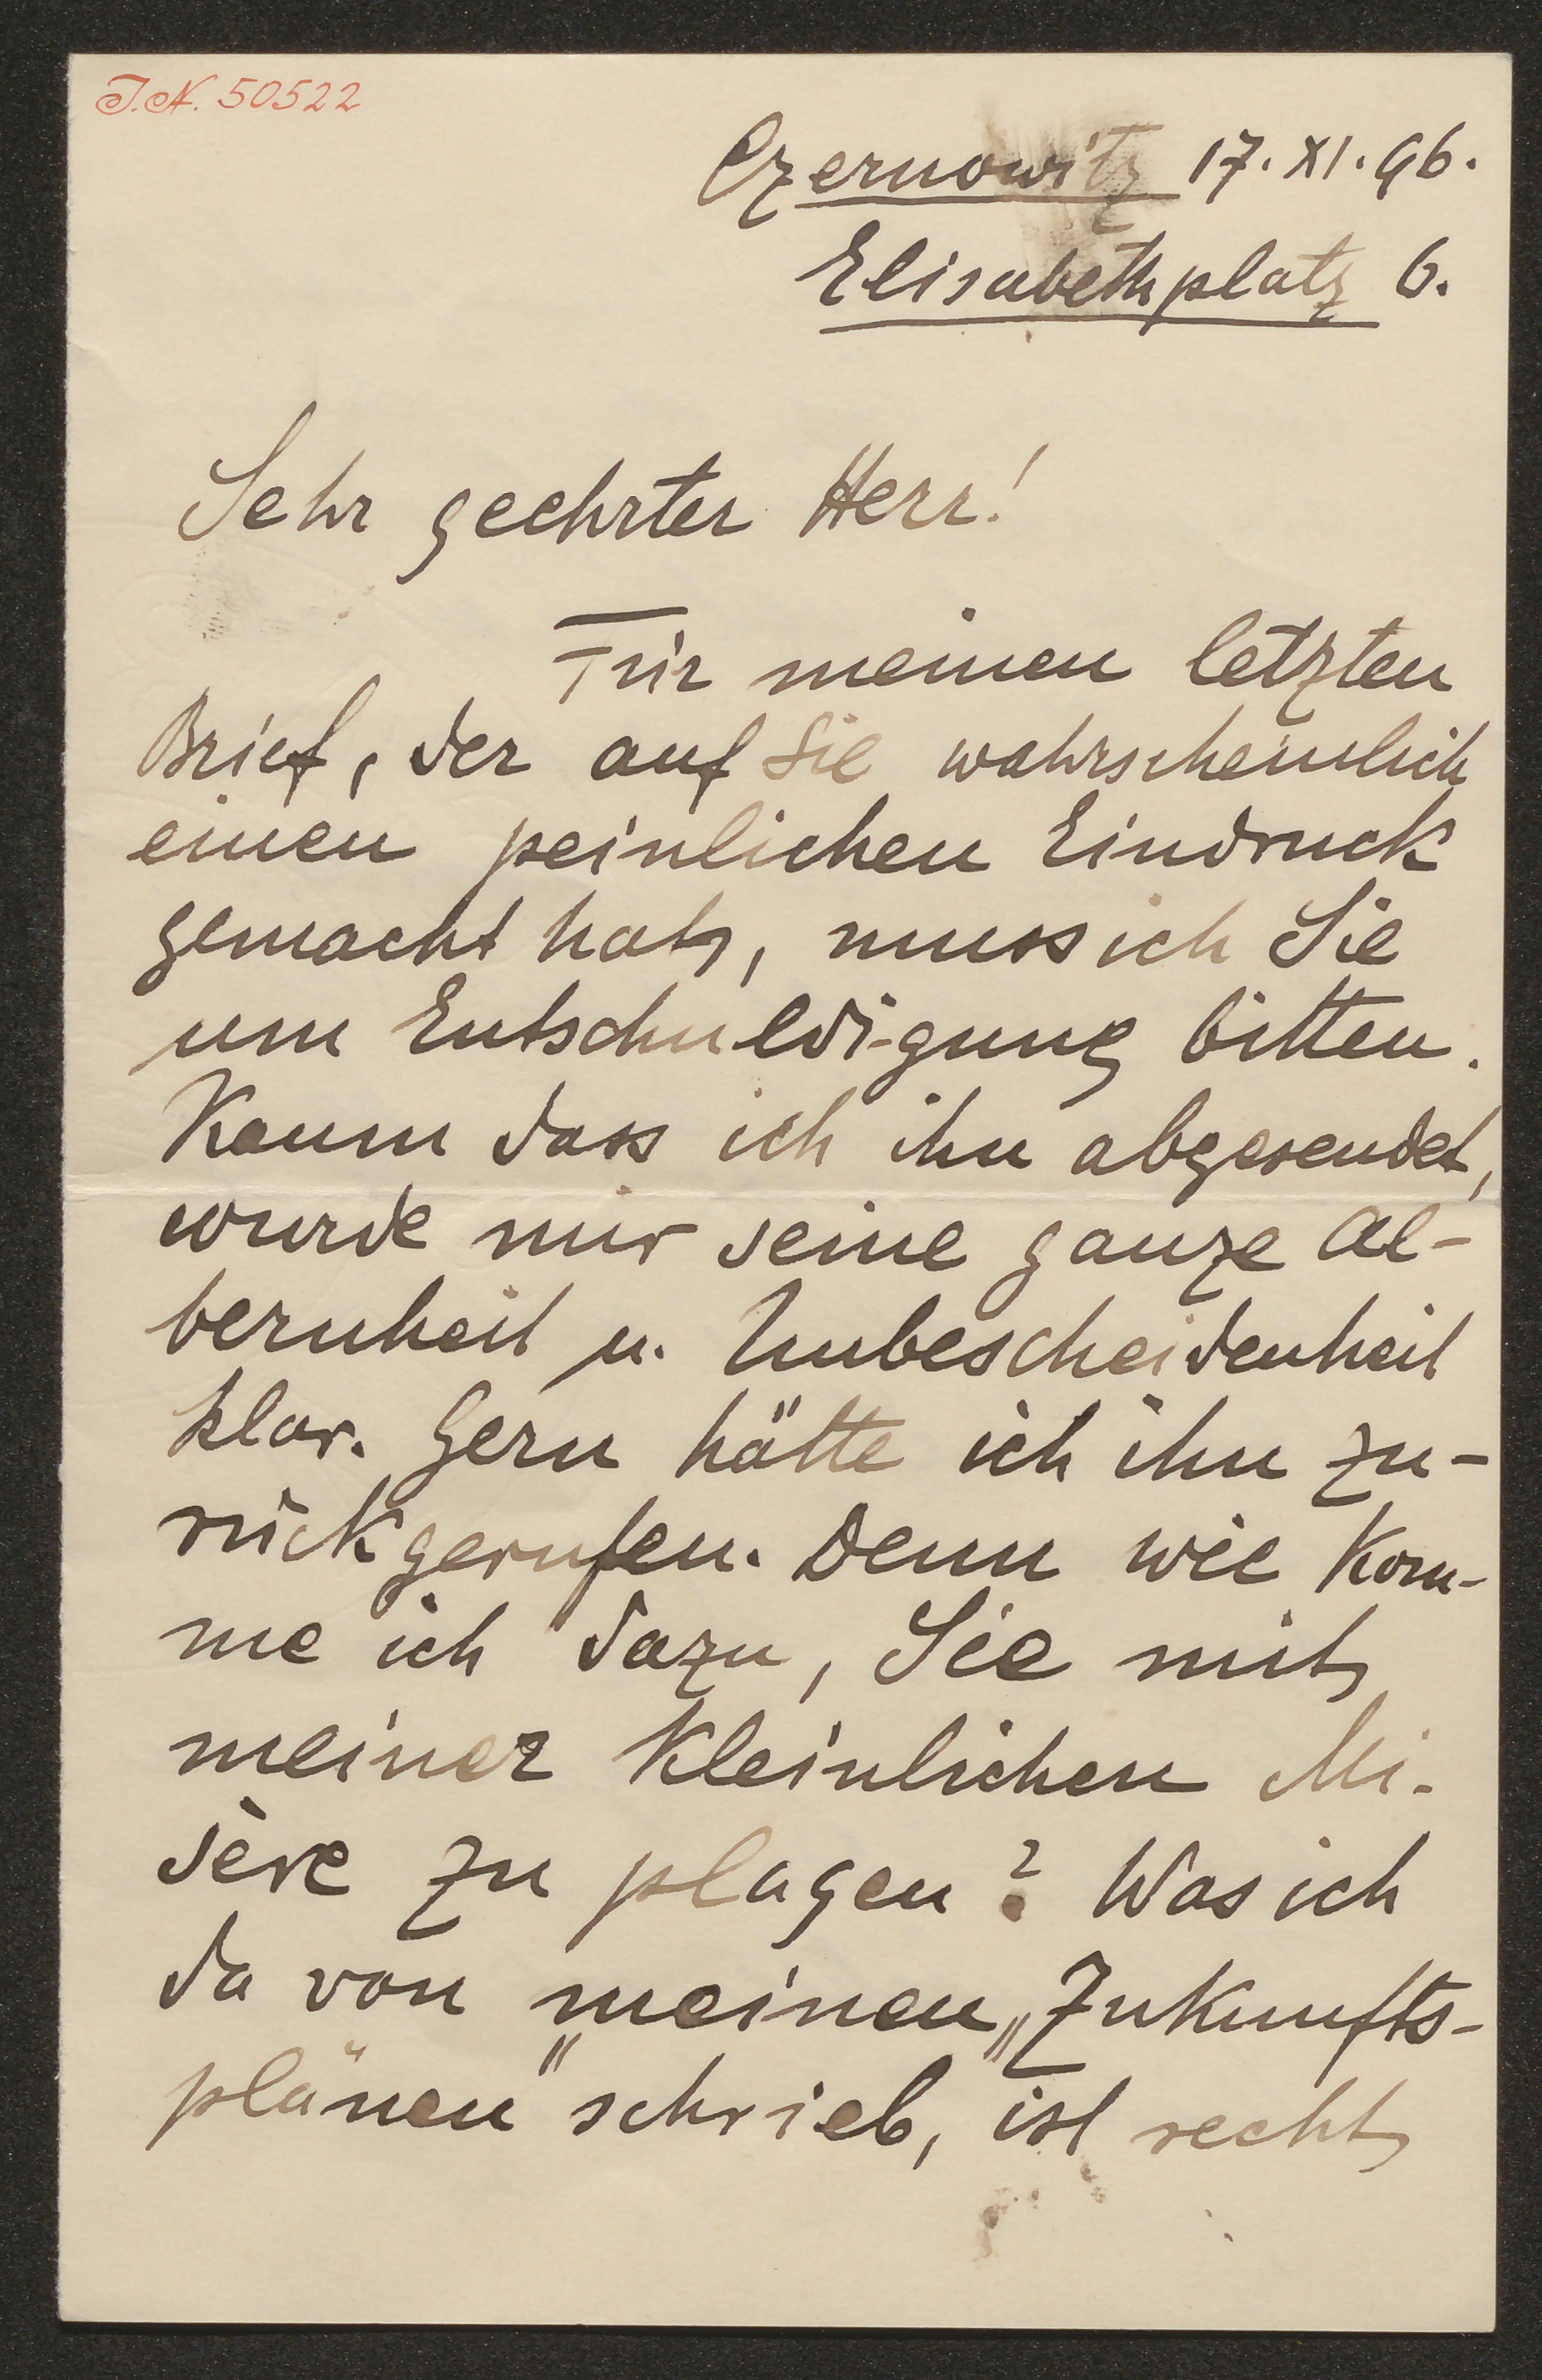 I.N. 50522
Czernowitz 17. XI. 96.
Elisabethplatz 6.
Sehr geehrter Herr!
Für meinen letzten
Brief, der auf Sie wahrscheinlich
einen peinlichen Eindruck
gemacht hat, muss ich Sie
um Entschuldigung bitten.
Kaum dass ich ihn abgesendet,
wurde mir seine ganze Al-
bernheit u. Unbescheidenheit
klar. Gern hätte ich ihn zu-
rückgerufen. Denn wie kom-
me ich dazu, Sie mit
meiner kleinlichen Mi-
sère zu plagen? Was ich
da von „meinen „Zukunfts-
plänen" schrieb, ist recht